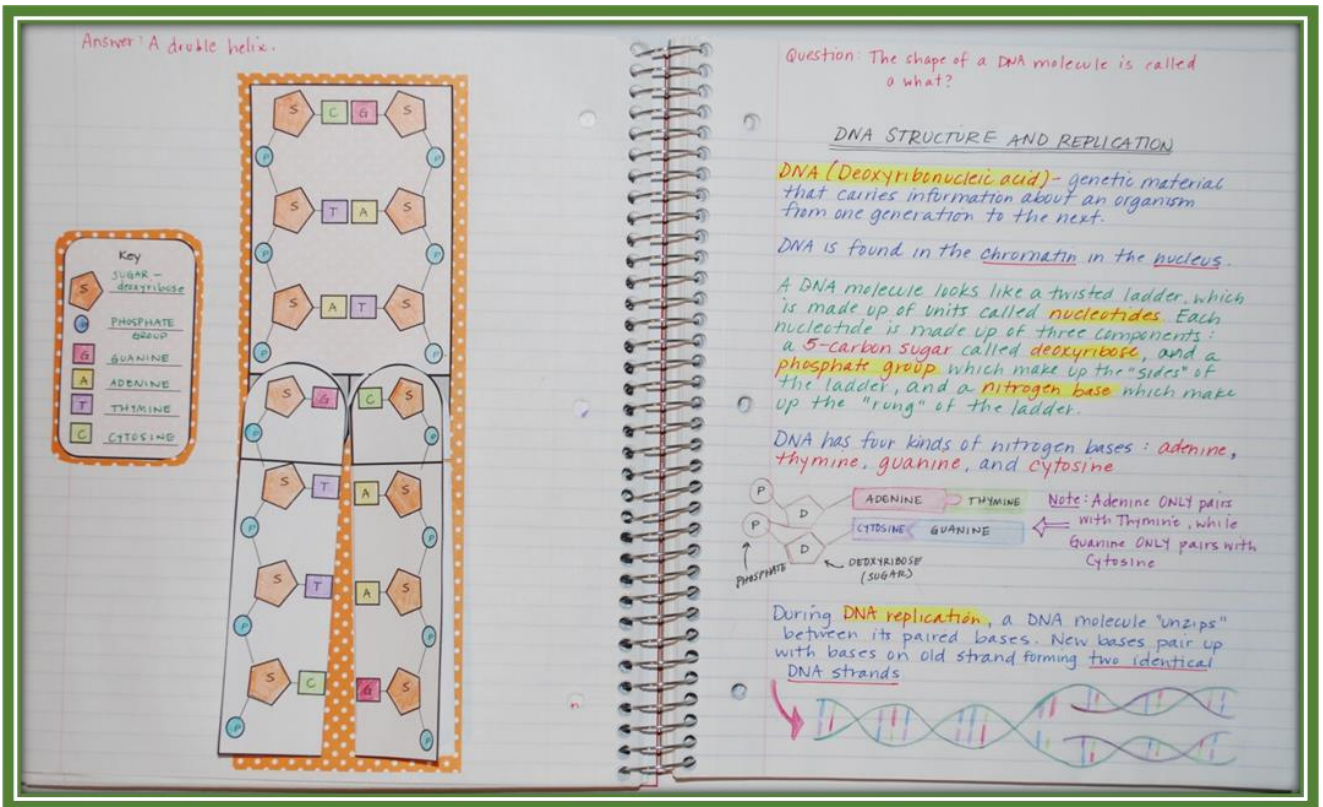 Answer: A druble helix.
S C G S
P P
S T A S
P P
S A T S
P P
S G C S
P P
S T A S
P P
S T A S
P P
S C G S
P P
Key
S SUGAR -
deoxyribose
P PHOSPHATE
GROUP
G GUANINE
A ADENINE
T THYMINE
C CYTOSINE
Question: The shape of a DNA molecule is called
a what?
DNA STRUCTURE AND REPLICATION
DNA (Deoxyribonucleic acid) - genetic material
that carries information about an organism
from one generation to the next.
DNA is found in the chromatin in the nucleus.
A DNA molecule looks like a twisted ladder, which
is made up of units called nucleotides. Each
nucleotide is made up of three components:
a 5-carbon sugar called deoxyribose, and a
phosphate group which make up the "sides" of
the ladder, and a nitrogen base which make
up the "rung" of the ladder.
DNA has four kinds of nitrogen bases: adenine,
thymine, guanine, and cytosine
P D ADENINE THYMINE
P D CYTOSINE GUANINE
PHOSPHATE
DEOXYRIBOSE
(SUGAR)
Note: Adenine ONLY pairs
with Thymine, while
Guanine ONLY pairs with
Cytosine
During DNA replication, a DNA molecule "unzips"
between its paired bases. New bases pair up
with bases on old strand forming two identical
DNA strands